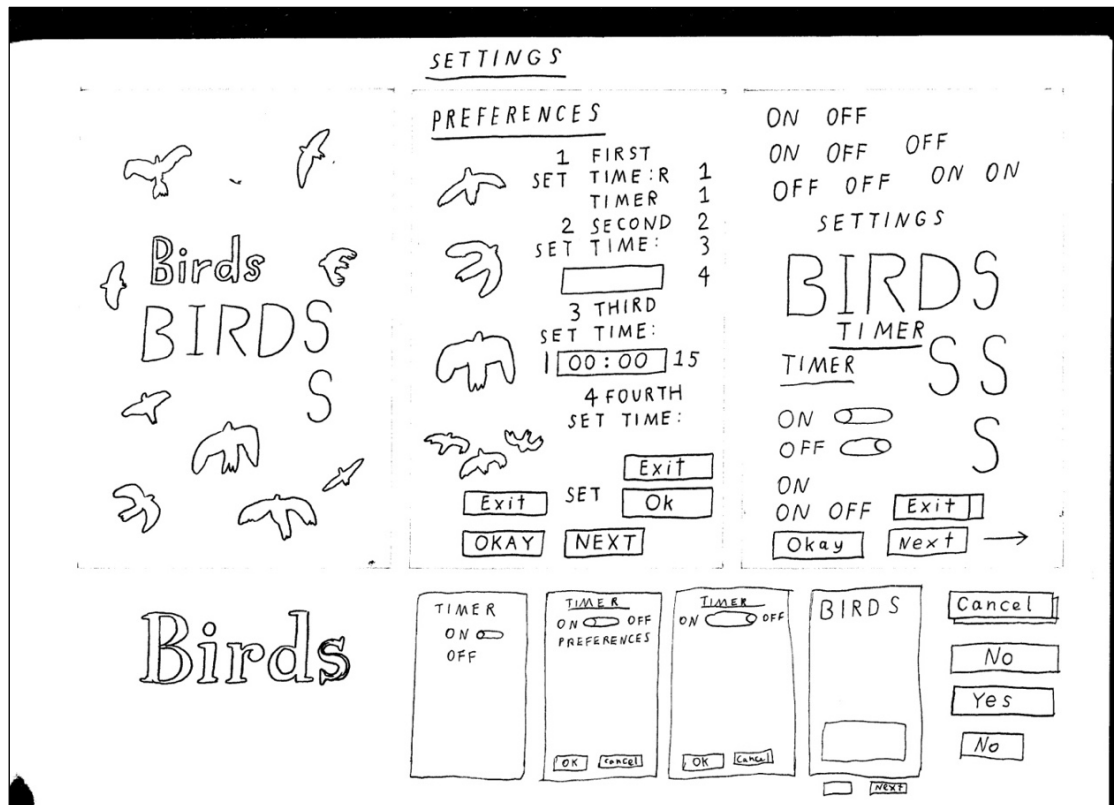 SETTINGS
Birds
BIRDS
S
PREFERENCES
1 FIRST
SET TIME:R 1
TIMER 1
2 SECOND 2
SET TIME: 3
4
3 THIRD
SET TIME:
1 00:00 15
4 FOURTH
SET TIME:
Exit
Exit SET Ok
OKAY NEXT
ON OFF
ON OFF OFF
OFF OFF ON ON
SETTINGS
BIRDS
TIMER
TIMER SS
ON
OFF S
ON
ON OFF Exit
Okay Next
Birds
TIMER
ON
OFF
TIMER
ON OFF
PREFERENCES
OK Cancel
TIMER
ON OFF
OK Cancel
BIRDS
NEXT
Cancel
No
Yes
No